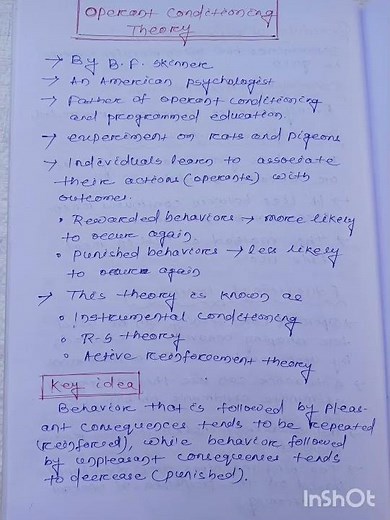 Operant Conditioning
Theory
→ By B. F. Skinner
→ An American psychologist
→ Father of operant conditioning
and programmed education
→ experiment on Rats and Pigeons
→ Individuals learn to associate
their actions (operants) with
outcomes.
• Rewarded behaviors → more likely
to occur again.
• Punished behaviors → less likely
to occur again
→ This theory is known as
• Instrumental conditioning
• R-S theory
• Active Reinforcement theory
Key idea
Behavior that is followed by pleas-
ant consequences tends to be repeated
(reinforced), while behavior followed
by unpleasant consequences tends
to decrease (punished).
InShOt